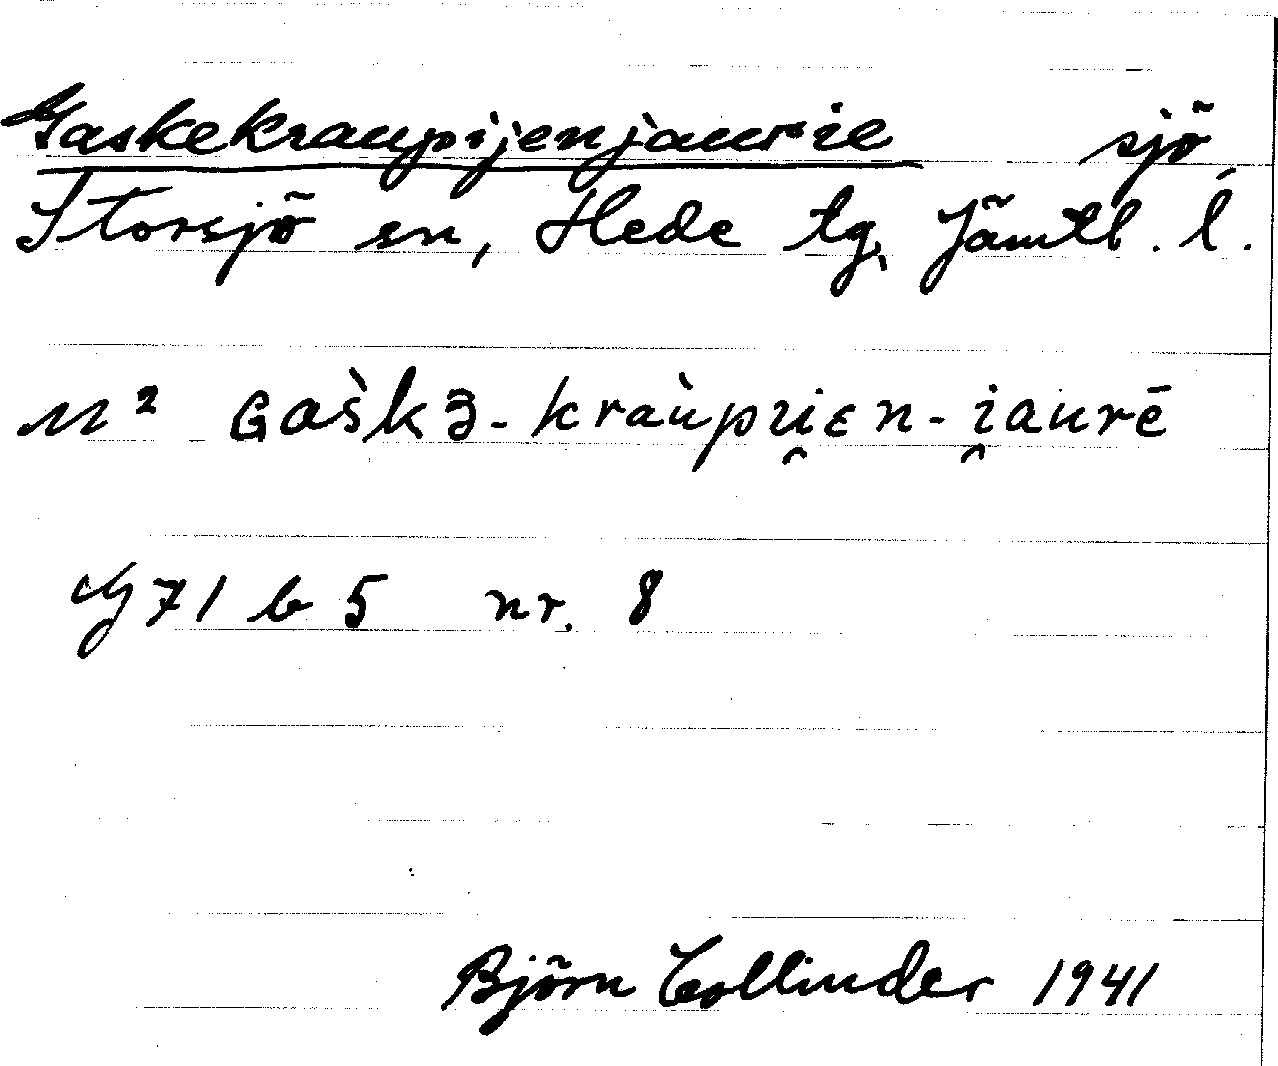 Gaskekraupijenjaurie sjö
Storsjö sn, Hede tg, Jämtl. l.
M² Gaškə-kràùpu̯i̯en-i̯aurē
Gg 71 b 5 nr. 8
Björn Collinder 1941